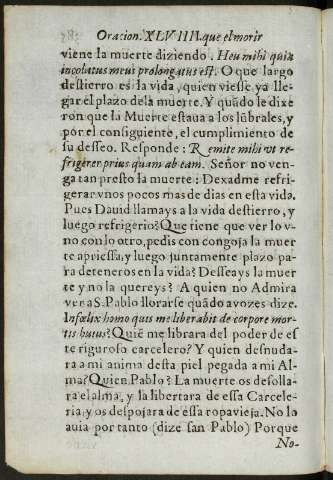 Oracion. XLVIIII. que el morir
viene la muerte diziendo. Heu mihi quia
incolatus meus prolongatus est. O que largo
destierro es la vida, quien viesse ya lle-
gar el plazo dela muerte. Y quãdo le dixe
ron que la Muerte estaua a los lũbrales, y
por el consiguiente, el cumplimiento de
su desseo. Responde: Remite mihi vt re-
frigerer prius quam abeam. Señor no ven-
ga tan presto la muerte: Dexadme refri-
gerar vnos pocos mas de dias en esta vida.
Pues Dauid llamays a la vida destierro, y
luego refrigerio? Que tiene que ver lo v-
no con lo otro, pedis con congoja la muer
te apriessa, y luego juntamente plazo pa-
ra deteneros en la vida? Desseays la muer
te y no la quereys? A quien no Admira
ver a S. Pablo llorarse quãdo a vozes dize.
Infœlix homo quis me liberabit de corpore mor-
tis huius? Quiẽ me librara del poder de es
te riguroso carcelero? Y quien desnuda-
ra a mi anima desta piel pegada a mi Al-
ma? Quien Pablo? La muerte os desolla-
ra el alma, y la libertara de essa Carcele-
ria, y os despojara de essa ropavieja. No lo
auia por tanto (dize san Pablo) Porque
No-